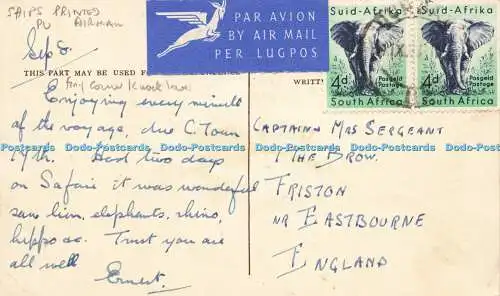 SHIPS PRINTED
PU AIRMAIL
PAR AVION
BY AIR MAIL
PER LUGPOS
Suid-Afrika
4d
Posgeld
Postage
South Africa
Suid-Afrika
4d
Posgeld
Postage
South Africa
Sep 8.
THIS PART MAY BE USED FOR
WRITT
tiny corner knock
Enjoying every minute
of the voyage, due C. Town
19th. Had two days
on Safari it was wonderful
saw lion, elephants, rhino,
hippo &c. Trust you are
all well
Ernest.
CAPTAIN & MRS SERGEANT
THE BROW.
FRISTON
NR EASTBOURNE
ENGLAND
Postcards www.delcampe.net